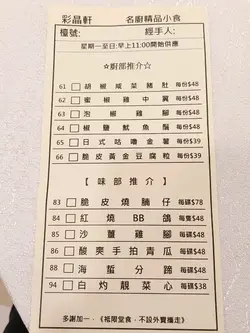 彩晶軒 名廚精品小食
檯號: 經手人:
星期一至日:早上11:00開始供應
☆廚部推介☆
61 □ 胡椒咸菜豬肚 每份$48
62 □ 蜜椒雞中翼 每份$48
63 □ 泡椒雞腳 每份$48
64 □ 椒鹽魷魚鬚 每份$48
65 □ 日式咕嚕金薯 每份$39
66 □ 脆皮黃金豆腐粒 每份$39
【味部推介】
83 □ 脆皮燒腩仔 每碟$78
84 □ 紅燒BB鴿 每隻$48
85 □ 沙薑雞腳 每碟$48
86 □ 酸爽手拍青瓜 每碟$48
88 □ 海蜇分蹄 每碟$48
94 □ 白灼靚菜心 每碟$38
多謝加一．《祗限堂食，不設外賣攜走》